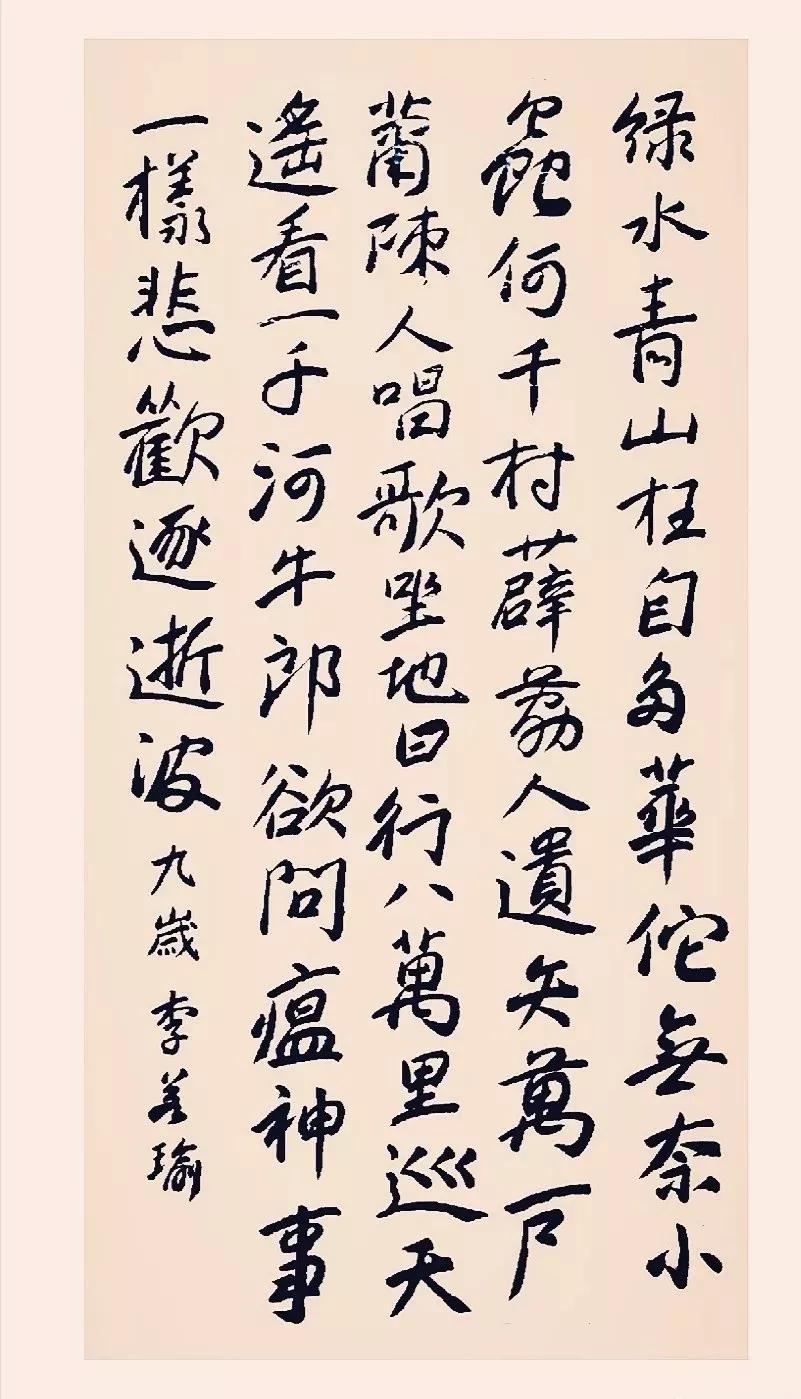 绿水青山枉自多華佗無奈小
蟲何千村薜荔人遺矢萬戶
蕭疎人唱歌坐地日行八萬里巡天
遙看一千河牛郎欲問瘟神事
一樣悲歡逐逝波 九歲 李若瑜